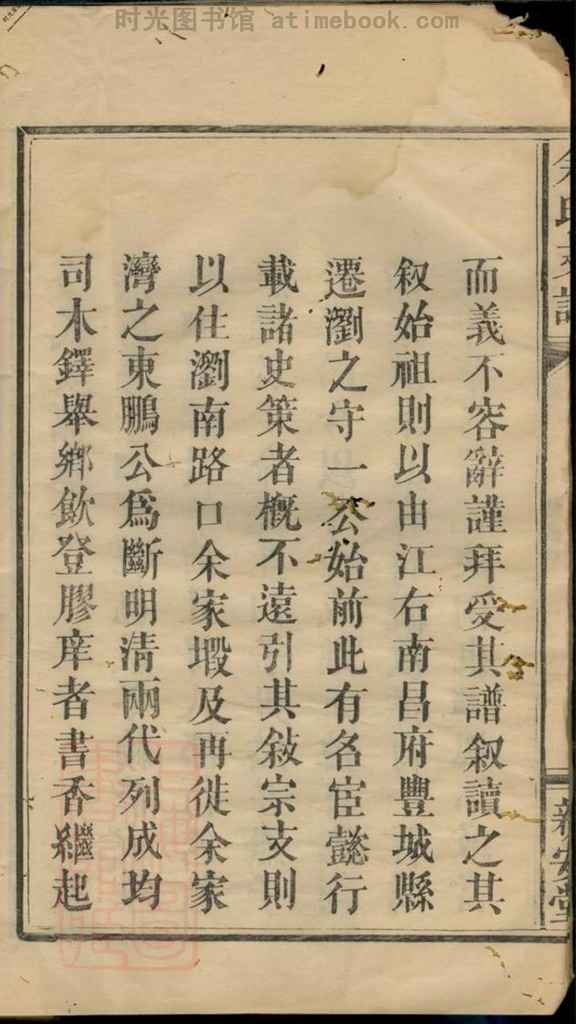 时光图书馆 atimebook.com
而義不容辭謹拜受其譜叙讀之其
叙始祖則以由江右南昌府豐城縣
遷瀏之守一公始前此有名宦懿行
載諸史策者概不遠引其敍宗支則
以住瀏南路口余家塅及再徙余家
灣之東鵬公爲斷明清兩代列成均
司木鐸舉鄉飲登膠庠者書香繼起
新安堂